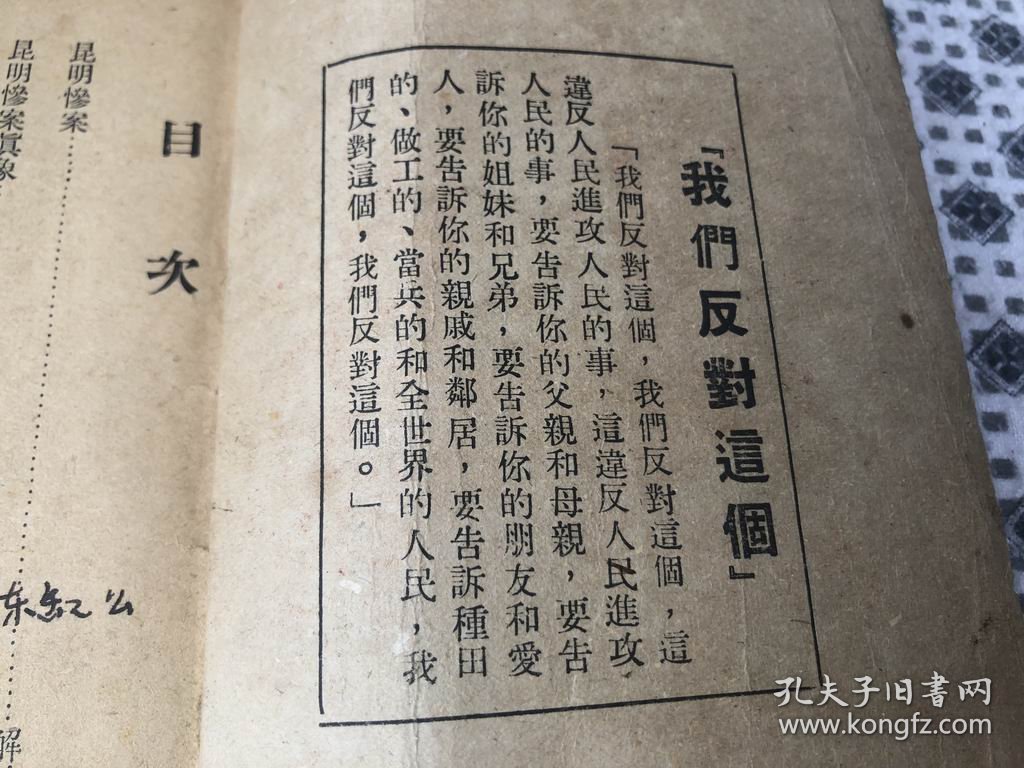 「我們反對這個」
「我們反對這個，我們反對這個，這
違反人民進攻人民的事，這違反人民進攻
人民的事，要告訴你的父親和母親，要告
訴你的姐妹和兄弟，要告訴你的朋友和愛
人，要告訴你的親戚和鄰居，要告訴種田
的、做工的、當兵的和全世界的人民，我
們反對這個，我們反對這個。」
目次
昆明慘案
昆明慘案眞象
解
孔夫子旧書网
www.kongfz.com